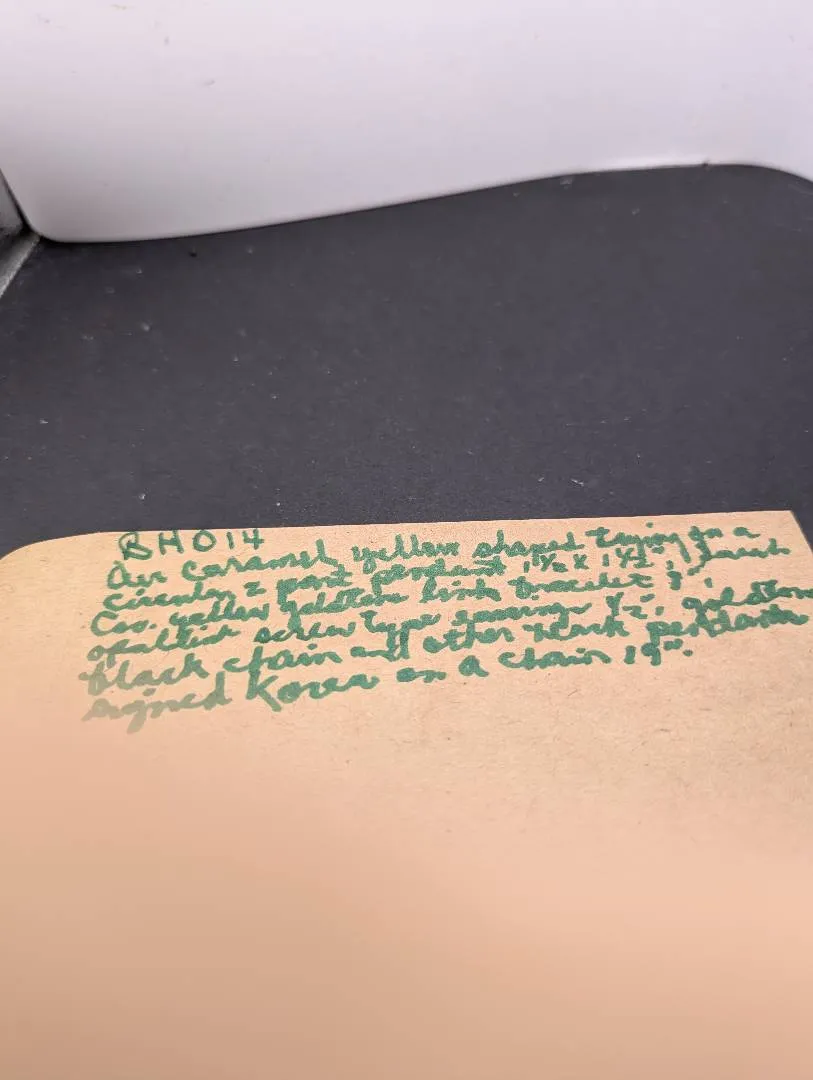 BH014
caramel yellow shaped on a
circular 2 part pendant 1½ x 1½",
Co. yellow goldtone link bracelet 7";
screw type earrings ½", goldtone
black chain and other black pendants
signed Korea on a chain 19".